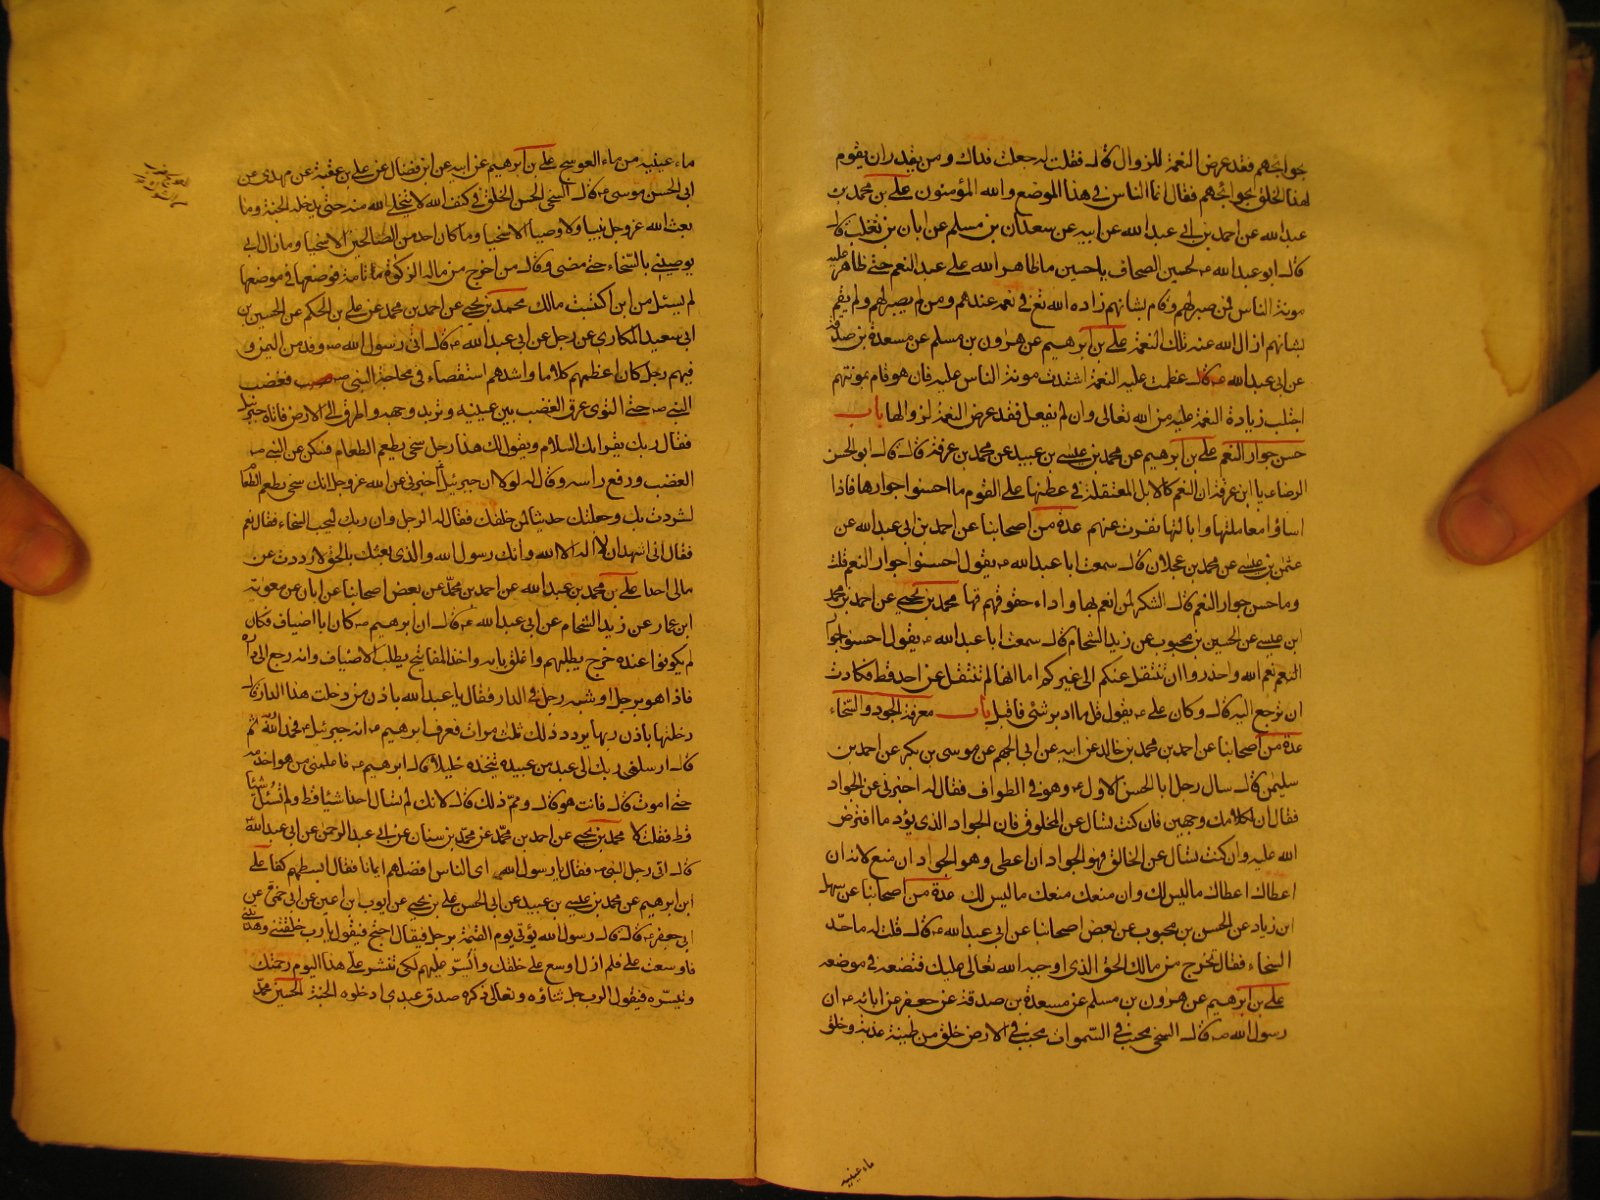 حوائجهم فقد عرض النعمة للزوال قال فقلت له جعلت فداك ومن يقدر ان يقوم
لهذا الخلق بحوائجهم فقال انما الناس في هذا الموضع والله المؤمنون علي بن محمد بن
عبد الله عن احمد بن ابي عبد الله عن ابيه عن سعدان بن مسلم عن ابان بن تغلب قال
قال ابو عبد الله ع لحسين الصحاف يا حسين ما ظاهر الله على عبد النعم حتى ظاهر عليه
مونة الناس فمن صبر لهم وقام بشانهم زاده الله تع في نعمه عندهم ومن لم يصبر لهم ولم يقم
بشانهم ازال الله عنه تلك النعمة علي بن ابرهيم عن هرون بن مسلم عن مسعدة بن صدقة
عن ابي عبد الله ع قال عظمت عليه النعمة اشتدت مونة الناس عليه فان هو قام بمونتهم
اجتلب زيادة النعمة عليه من الله تعالى وان لم يفعل فقد عرض النعمة لزوالها باب
حسن جوار النعم علي بن ابرهيم عن محمد بن عيسى بن عبيد عن محمد بن عرفة قال قال ابو الحسن
الرضا ع يا ابن عرفة ان النعم كالابل المعتقلة في عطنها على القوم ما احسنوا جوارها فاذا
اساؤا معاملتها وابالتها نفرت عنهم عدة من اصحابنا عن احمد بن ابي عبد الله عن
عثمن بن عيسى عن محمد بن عجلان قال سمعت ابا عبد الله ع يقول احسنوا جوار النعم قلت
وما حسن جوار النعم قال الشكر لمن انعم بها واداء حقوقهم قها محمد بن يحيى عن احمد بن محمد
ابن عيسى عن الحسين بن محبوب عن زيد الشحام قال سمعت ابا عبد الله ع يقول احسنوا جوار
النعم نعم الله واحذروا ان تنتقل عنكم الى غيركم اما انها لم تنتقل عن احد قط فكادت
ان ترجع اليه قال وكان علي ع يقول قل ما ادبر شئ فاقبل باب معرفة الجود والسخاء
عدة من اصحابنا عن احمد بن محمد بن خالد عن ابيه عن ابي الجهم عن موسى بن بكر عن احمد بن
سليمن قال سال رجل ابا الحسن الاول ع وهو في الطواف فقال له اخبرني عن الجواد
فقال ان لكلامك وجهين فان كنت تسال عن المخلوق فان الجواد الذي يؤد ما افترض
الله عليه وان كنت تسال عن الخالق فهو الجواد ان اعطى وهو الجواد ان منع لانه ان
اعطاك اعطاك ما ليس لك وان منعك منعك ما ليس لك عدة من اصحابنا عن سهل
ابن زياد عن الحسن بن محبوب عن بعض اصحابنا عن ابي عبد الله ع قال قلت له ما حد
السخاء فقال تخرج من مالك الحق الذي اوجبه الله تعالى عليك فتضعه في موضعه
علي بن ابرهيم عن هرون بن مسلم عن مسعدة بن صدقة عن جعفر عن ابائه ع ان
رسول الله ص قال السخي محبب في السموات محبب في الارض خلق من طينة عذبة وخلق
ماء عينيه
ماء عينيه من ماء العوسج علي بن ابرهيم عن ابيه عن ابن فضال عن علي بن عقبة عن مهدي عن
ابي الحسن موسى ع قال السخي الحسن الخلق في كنف الله لا يتخلى الله منه حتى يدخله الجنة وما
بعث الله عز وجل نبيا ولا وصيا الا سخيا وما كان احد من الصالحين الا سخيا وما زال ابي
يوصيني بالسخاء حتى مضى وقال من اخرج من ماله الزكوة تامة فوضعها في موضعها
لم يسئل من اين اكتسبت مالك محمد بن يحيى عن احمد بن محمد عن علي بن الحكم عن الحسين بن
ابي سعيد المكاري عن رجل عن ابي عبد الله ع قال اتى رسول الله ص وفد من اليمن و
فيهم رجل كان اعظمهم كلاما واشدهم استقصاء في محاجة النبي ص فغضب
النبي ص حتى التوى عرق الغضب بين عينيه وتربد وجهه واطرق الى الارض فاتاه جبرئيل
فقال ربك يقرأك السلام ويقول لك هذا رجل سخي يطعم الطعام فسكن عن النبي ص
الغضب ورفع راسه وقال له لولا ان جبرئيل اخبرني عن الله عز وجل انك سخي يطعم الطعام
لشردت بك وجعلتك حديثا لمن خلفك فقال له الرجل وان ربك ليحب السخاء فقال نعم
فقال اني اشهد ان لا اله الا الله وانك رسول الله والذي بعثك بالحق لا رددت عن
مالي احدا علي بن محمد بن عبد الله عن احمد بن محمد عن بعض اصحابنا عن ابان عن معوية
ابن عمار عن زيد الشحام عن ابي عبد الله ع قال ان ابرهيم ع كان ابا اضياف فكان
لم يكونوا عنده خرج يطلبهم واغلق بابه واخذ المفاتيح يطلب الاضياف وانه رجع الى داره
فاذا هو برجل او شبه رجل في الدار فقال يا عبد الله باذن من دخلت هذا الدار قال
دخلتها باذن ربها يردد ذلك ثلث مرات فعرف ابرهيم ع انه جبرئيل ع فحمد الله ثم
قال ارسلني ربك الى عبد من عبيده يتخذه خليلا قال ابرهيم ع فاعلمني من هو اخدمه
حتى اموت قال فانت هو قال ومم ذلك قال لانك لم تسال احدا شيئا قط ولم تسئل شيئا
قط فقلت لا محمد بن يحيى عن احمد بن محمد عن محمد بن سنان عن ابي عبد الرحمن عن ابي عبد الله ع
قال اتى رجل النبي ص فقال يا رسول الله اي الناس افضلهم ايمانا فقال ابسطهم كفا علي
ابن ابرهيم عن محمد بن عيسى بن عبيد عن ابي الحسن علي بن يحيى عن ايوب بن اعين عن ابي حمزة عن
ابي جعفر ع قال قال رسول الله يؤتى يوم القيمة برجل فيقال احتج فيقول يا رب خلقتني وهديتني
فاوسعت علي فلم ازل اوسع على خلقك وايسر عليهم لكي تنشر علي هذا اليوم رحمتك
وتيسره فيقول الرب جل ثناؤه وتعالى ذكره صدق عبدي ادخلوه الجنة الحسين محمد